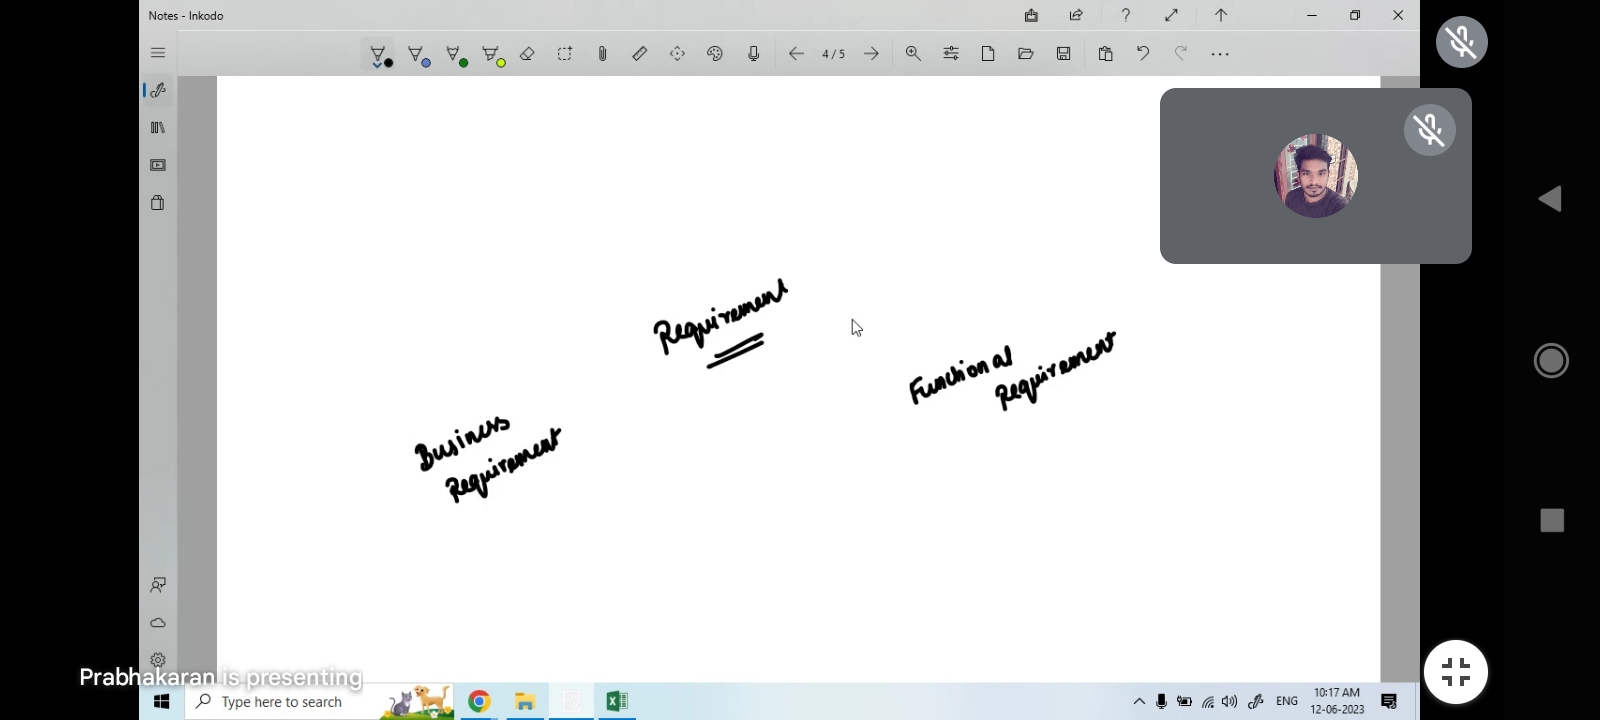 Notes - Inkodo
4/5
Requirement
Functional
Requirement
Business
Requirement
Prabhakaran is presenting
Type here to search
ENG
10:17 AM
12-06-2023